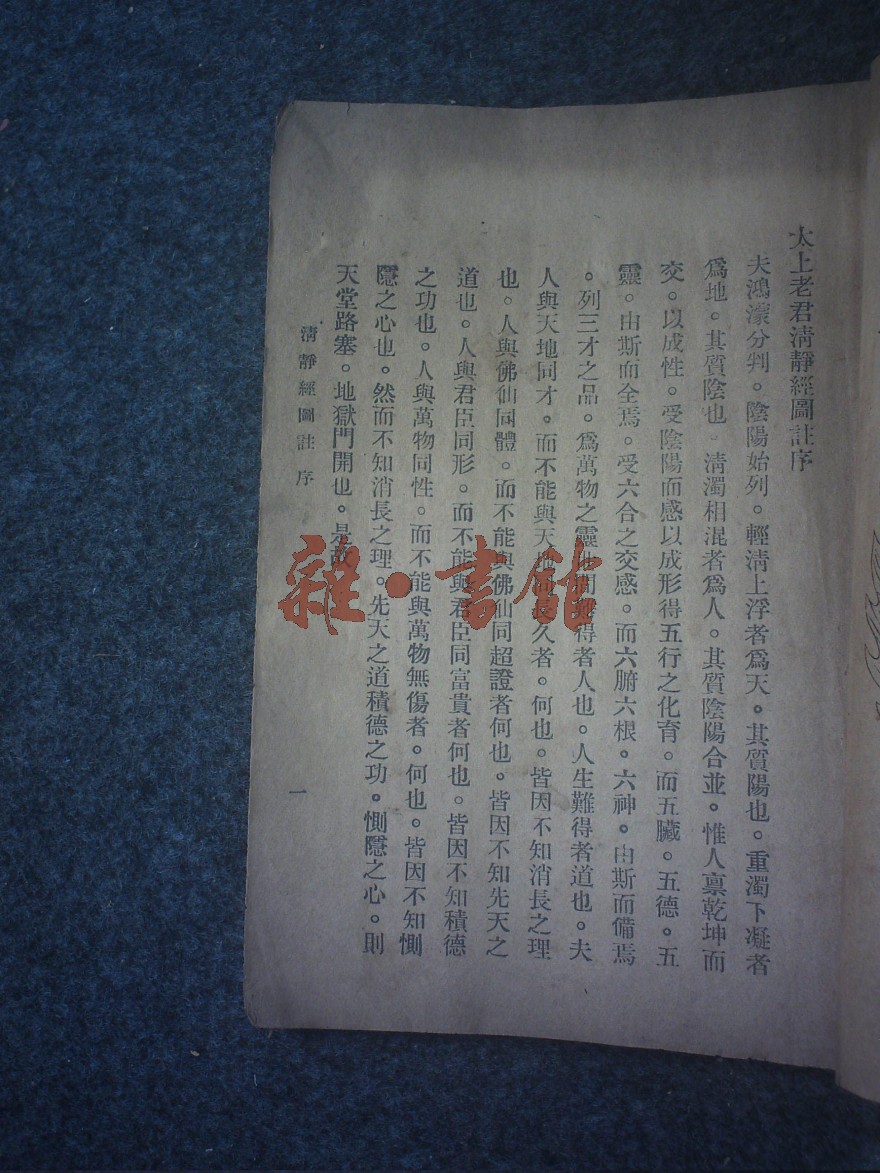 太上老君清靜經圖註序
夫鴻濛分判。陰陽始列。輕清上浮者爲天。其質陽也。重濁下凝者
爲地。其質陰也。清濁相混者爲人。其質陰陽合並。惟人禀乾坤而
交。以成性。受陰陽而感以成形得五行之化育。而五臟。五德。五
靈。由斯而全焉。受六合之交感。而六腑六根。六神。由斯而備焉
。列三才之品。爲萬物之靈得者人也。人生難得者道也。夫
人與天地同才。而不能與天地久者。何也。皆因不知消長之理
也。人與佛仙同體。而不能與佛仙同超證者何也。皆因不知先天之
道也。人與君臣同形。而不能與君臣同富貴者何也。皆因不知積德
之功也。人與萬物同性。而不能與萬物無傷者。何也。皆因不知惻
隱之心也。然而不知消長之理。先天之道積德之功。惻隱之心。則
天堂路塞。地獄門開也。是故
清靜經圖註 序
一
雜·書館